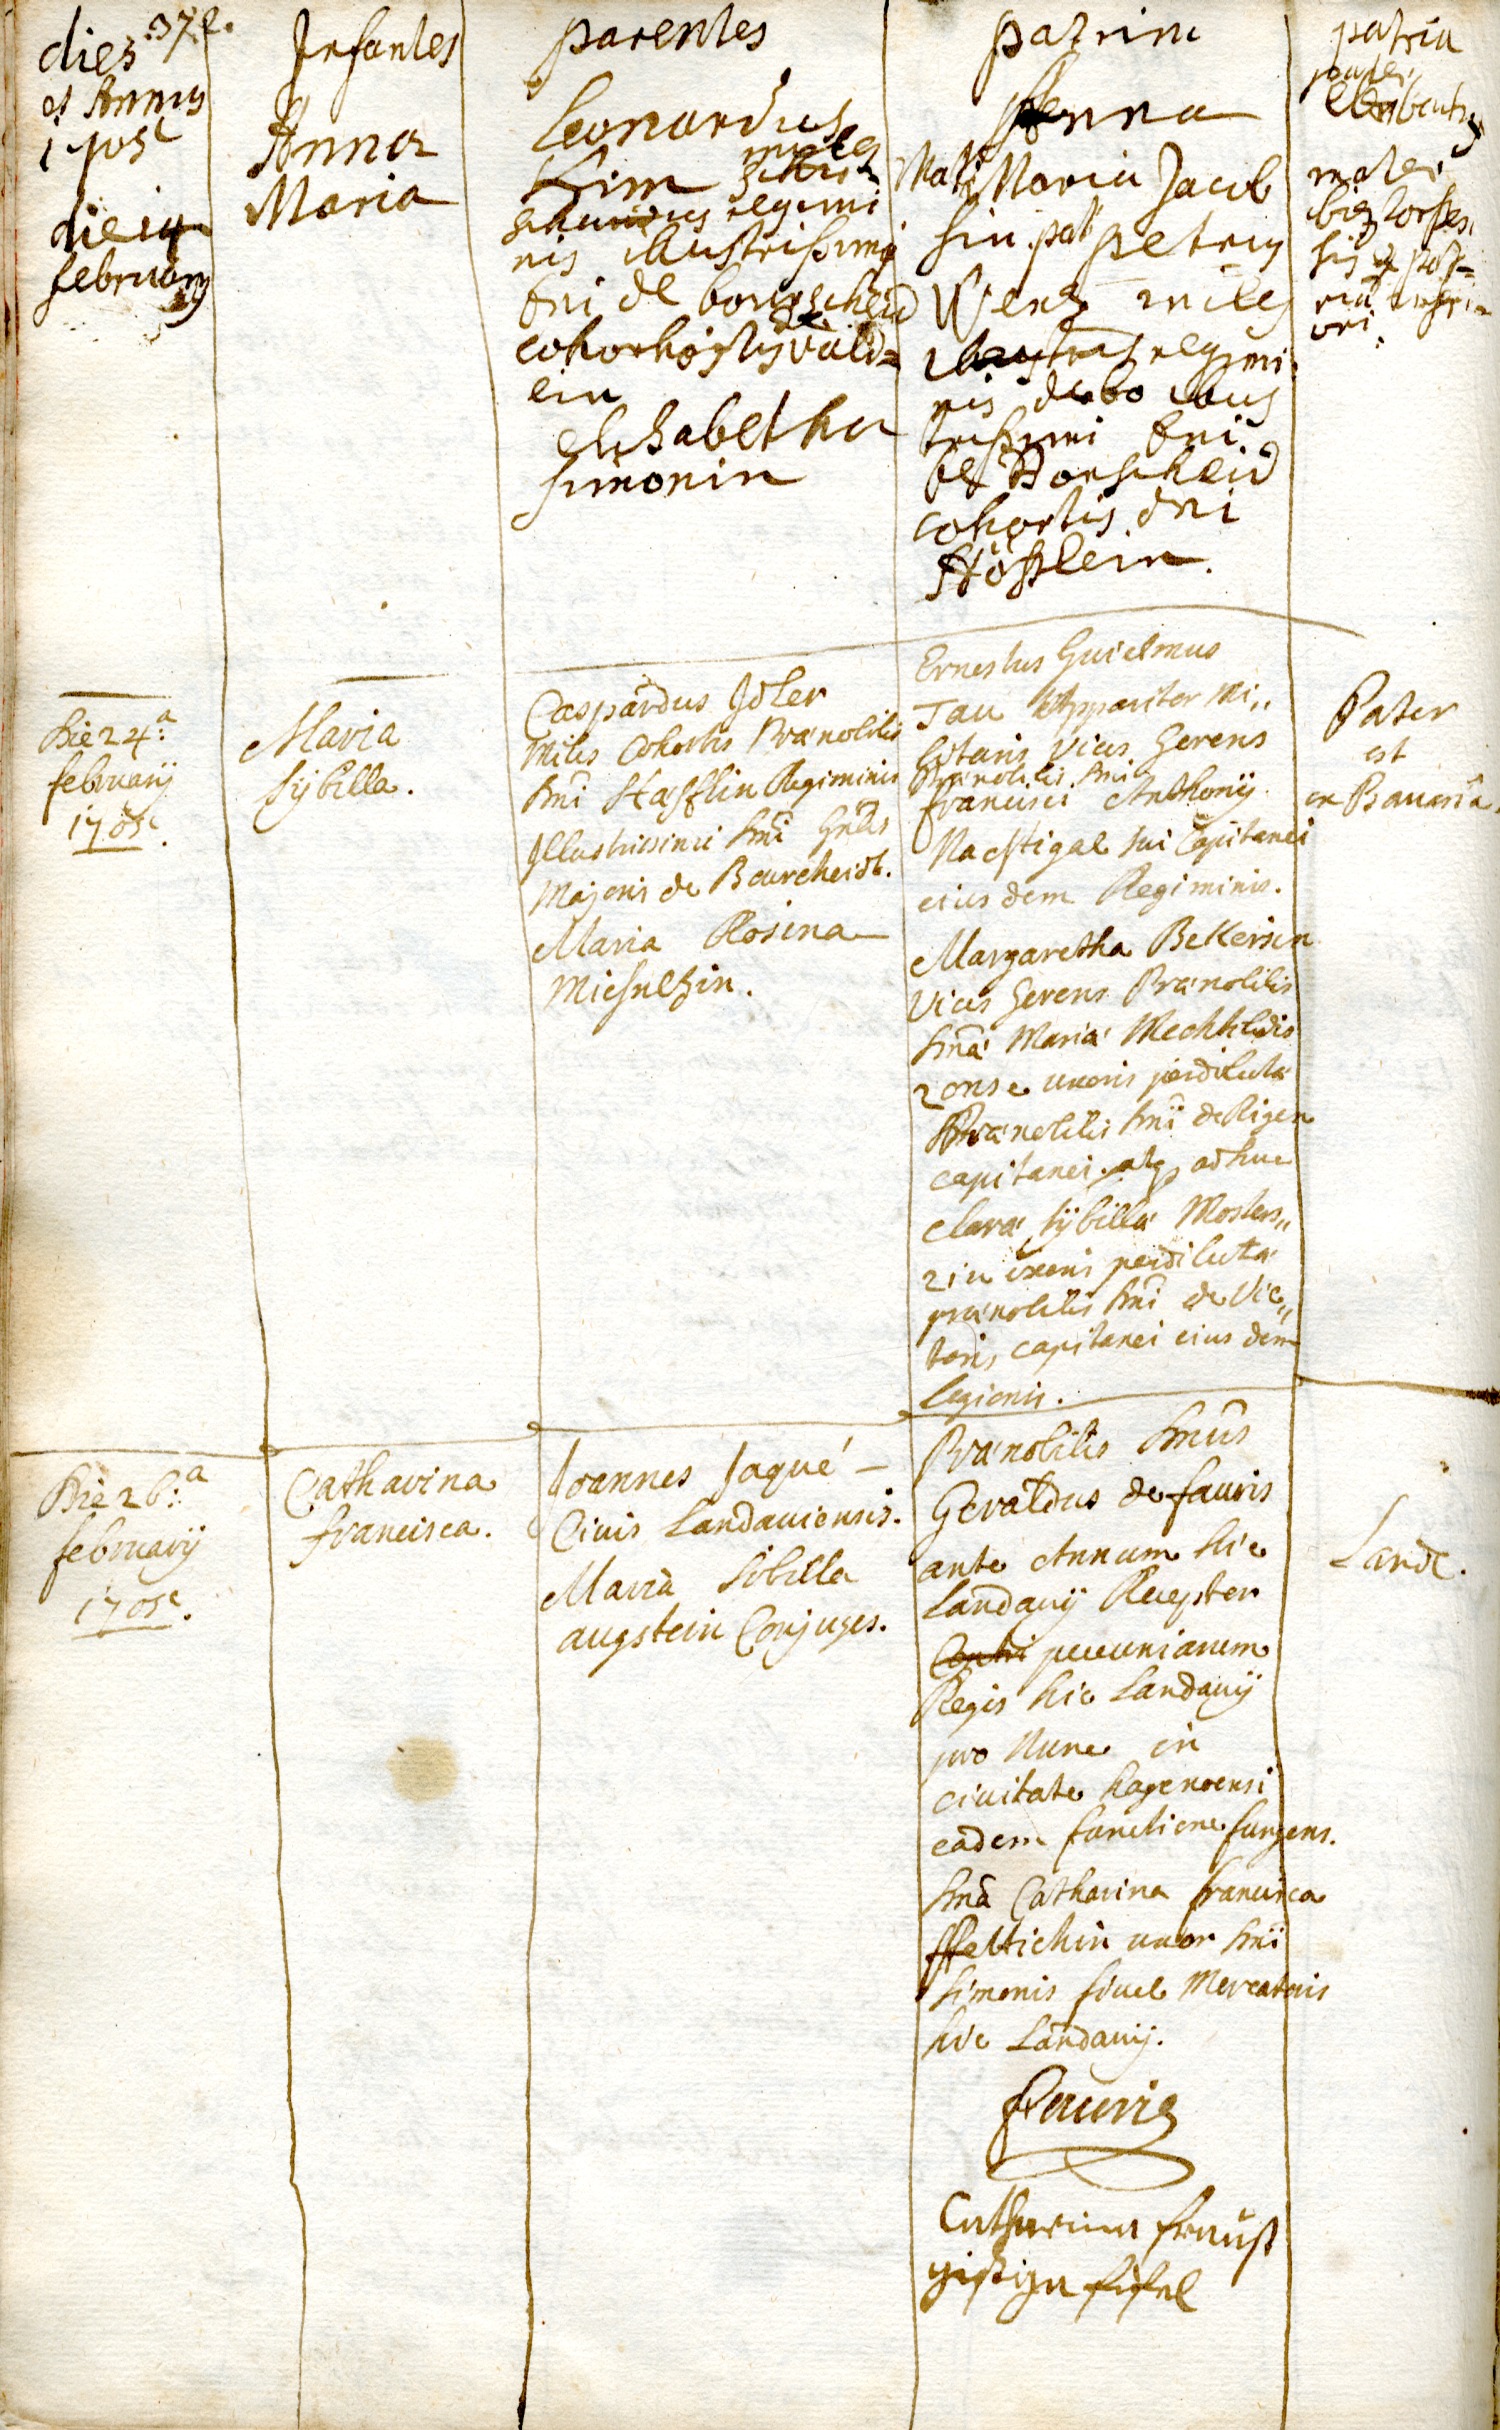 372.
dies
et Annus
1705
die 14
february
Infantes
Anna
Maria
parentes
Leonardus
Krim miles
regimi
nis illustrissimi
dni de bourscheid
cohortis
ein
elisabetha
simonin
patrini
Anna
Maria Jacob
sin. pat petrus
Wenz miles
regimi
nis illus
trissimi dni
de Borscheid
cohortis dni
Hösslein.
patria
pater
mater
Die 24.a
february
1705.
Maria
Sybilla.
Caspardus Idler
Miles Cohortis Prænobilis
Dni Hæsslin Regiminis
Illustrissimi Dni Gnlis
Majoris de Bourcheidt.
Maria Rosina
Michelzin.
Ernestus Guielmus
Tau Appariter Mi,,
litaris Vices Gerens
Prænobilis Dni
francisci Anthony
Nachtigal sui Capitanei
eiusdem Regiminis.
Margaretha Bekersin
Vices Gerens Prænobilis
Dnæ Mariæ Mechtildis
Zonse uxoris perdilectæ
Prænobilis Dni de Rigen
capitanei. atq adhuc
Claræ Sybillæ Mosters,,
zin uxoris perdilectæ
prænobilis Dni de Vic,,
toris capitanei eiusdem
legionis.
Pater
est
ex Bauaria.
Die 26.a
february
1705.
Catharina
francisca.
Joannes Jaqué –
Ciuis Landauiensis.
Maria Sibilla
augstein Conjuges.
Prænobilis Dnus
Geraldus de fauris
ante Annum hic
Landauy Receptor
pecuniarum
Regis hic Landauy
pro Nunc in
ciuitate hagenoensi
eadem functione fungens.
Dna Catharina francisca
ffeltichin uxor Dni
Simonis siuel Mercatoris
hic Landauy.
fauris
Catharina
Land.